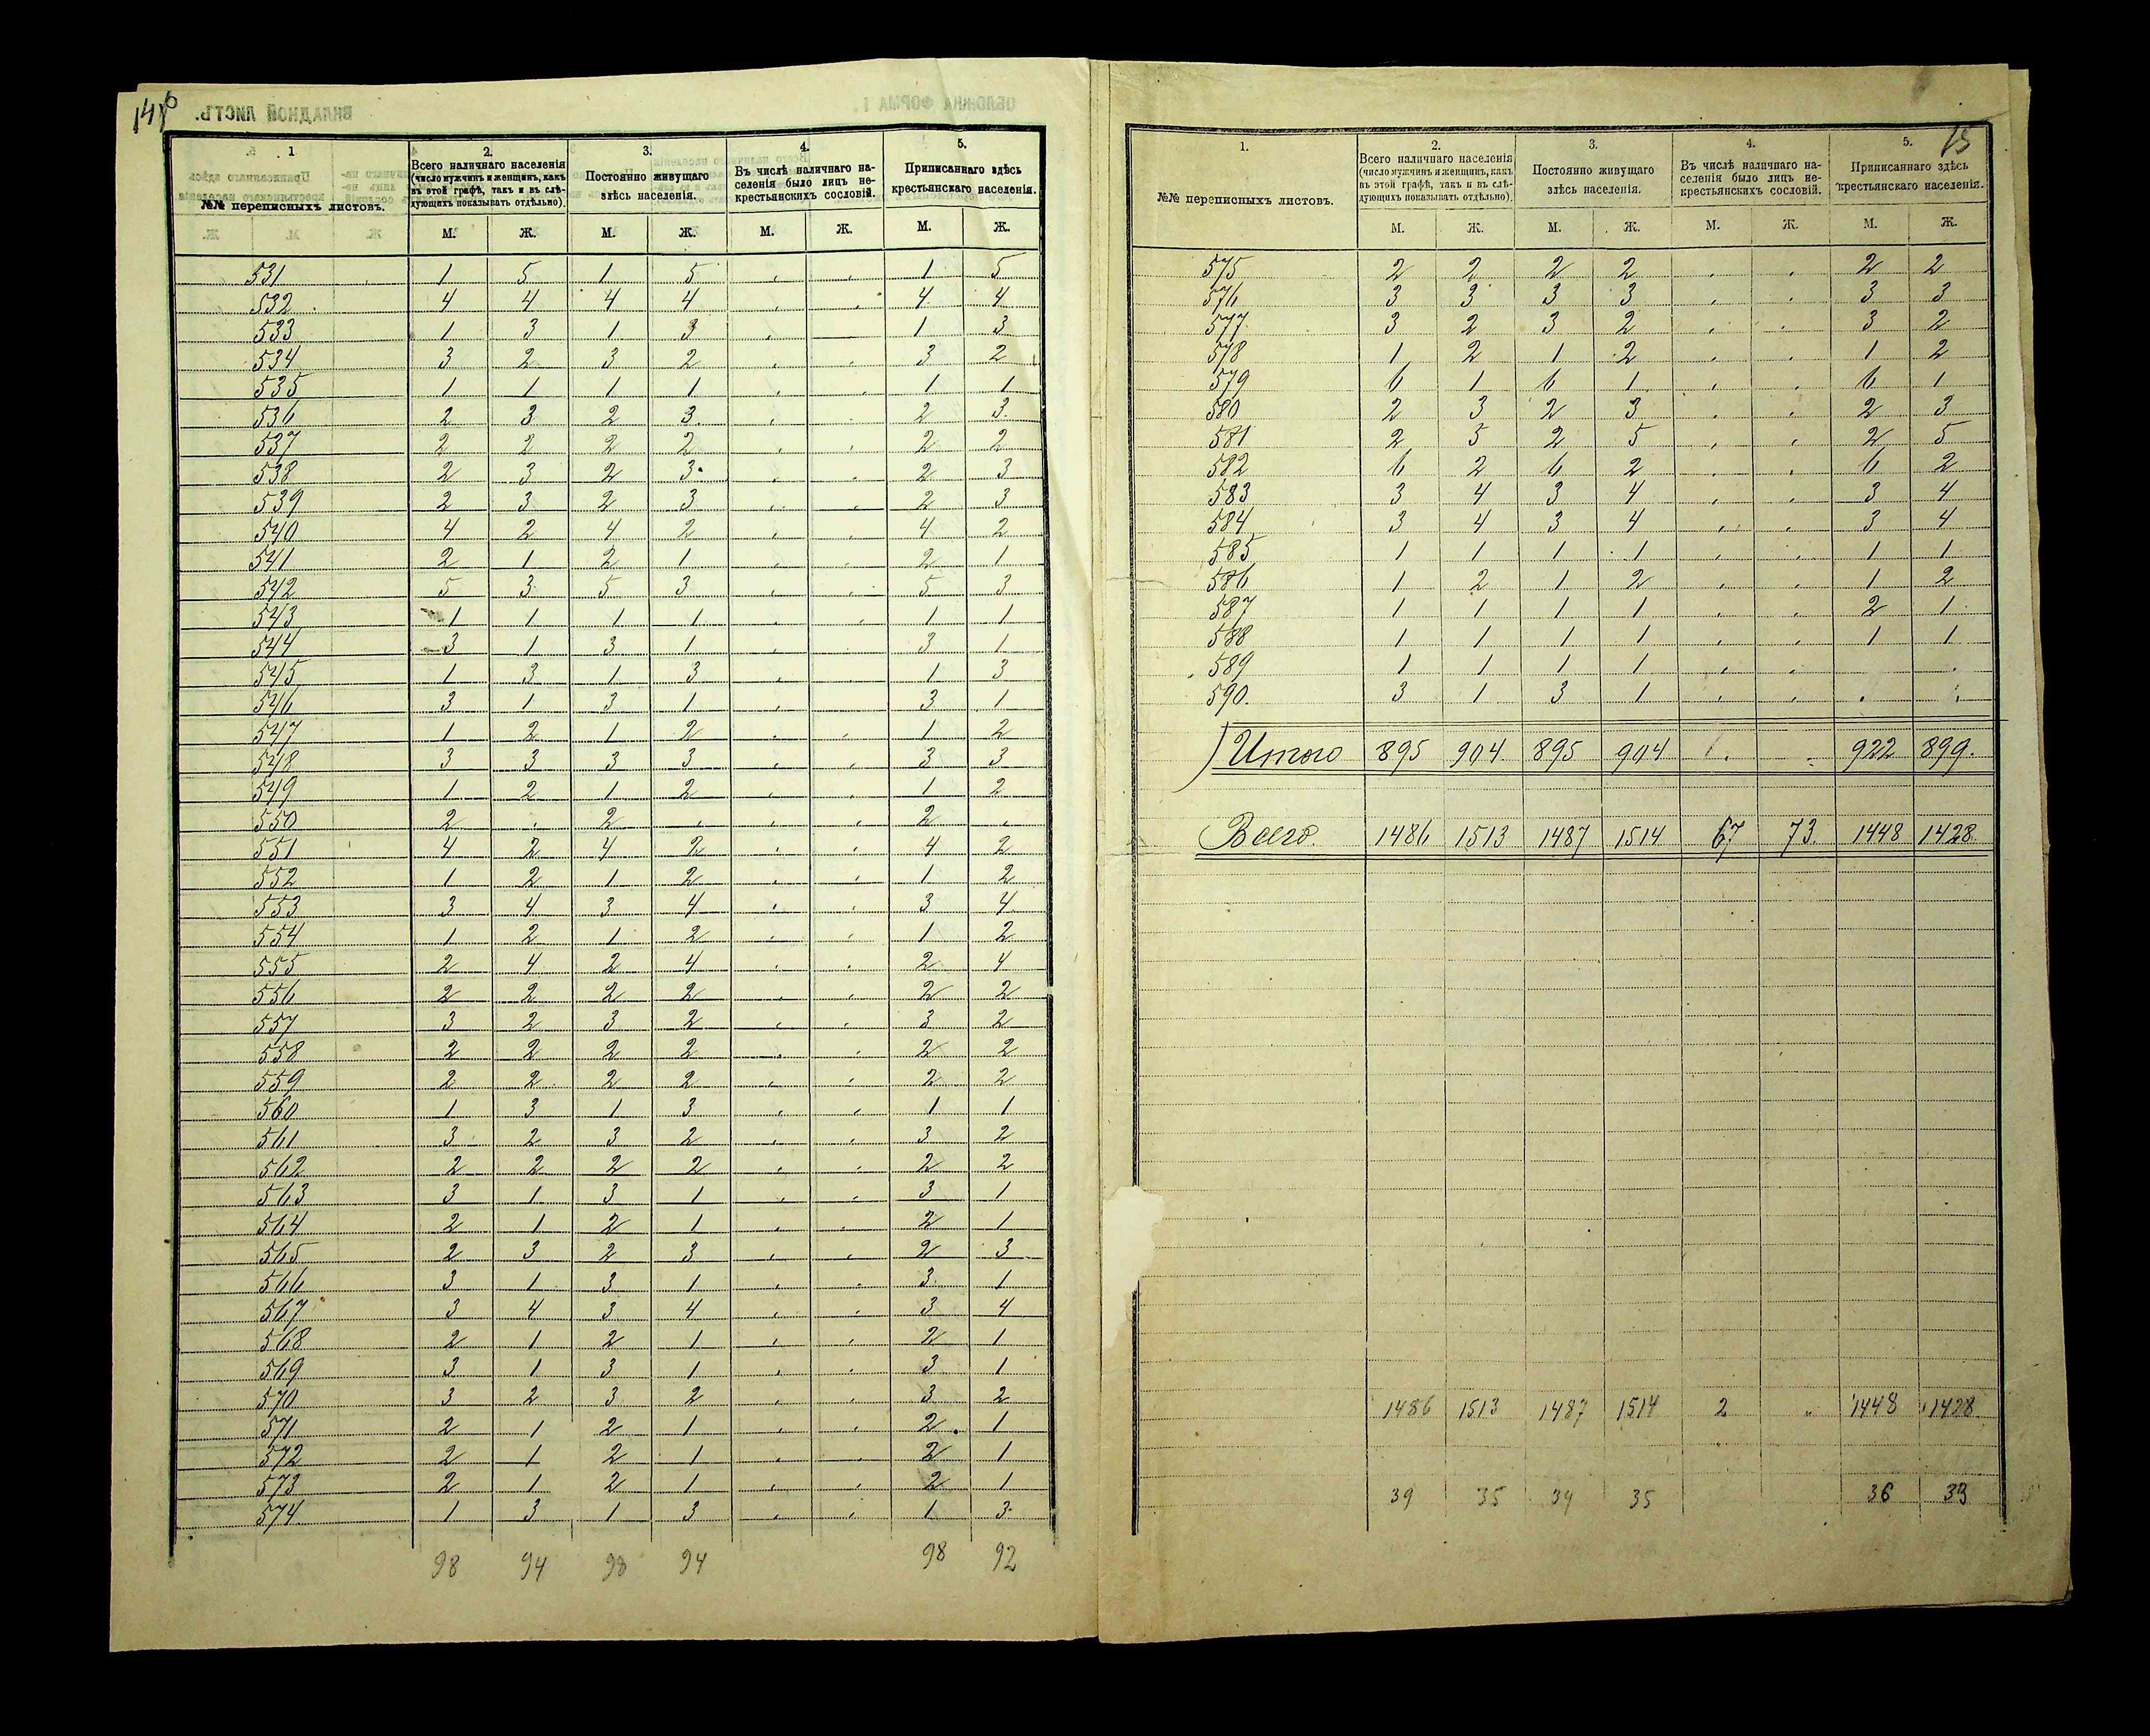 ВКЛАДНОЙ ЛИСТЪ.
ОБЛОЖКА ФОРМА 1.
1 2. 3. 4. 5.
№№ переписныхъ листовъ. Всего наличнаго населенія (число мужчинъ и женщинъ, какъ въ этой графѣ, такъ и въ слѣдующихъ показывать отдѣльно). Постоянно живущаго здѣсь населенія. Въ числѣ наличнаго населенія было лицъ не-крестьянскихъ сословій. Приписаннаго здѣсь крестьянскаго населенія.
М. Ж. М. Ж. М. Ж. М. Ж.
531 1 5 1 5 . . 1 5
532 4 4 4 4 . . 4 4
533 1 3 1 3 . 1 3
534 3 2 3 2 . . 3 2
535 1 1 1 1 . . 1 1
536 2 3 2 3 . . 2 3
537 2 2 2 2 . . 2 2
538 2 3 2 3 . . 2 3
539 2 3 2 3 . . 2 3
540 4 2 4 2 . . 4 2
541 2 1 2 1 . . 2 1
542 5 3 5 3 . . 5 3
543 1 1 1 1 . . 1 1
544 3 1 3 1 . . 3 1
545 1 3 1 3 . . 1 3
546 3 1 3 1 . . 3 1
547 1 2 1 2 . . 1 2
548 3 3 3 3 . . 3 3
549 1 2 1 2 . . 1 2
550 2 . 2 . . . 2 .
551 4 2 4 2 . . 4 2
552 1 2 1 2 . . 1 2
553 3 4 3 4 . . 3 4
554 1 2 1 2 . . 1 2
555 2 4 2 4 . . 2 4
556 2 2 2 2 . . 2 2
557 3 2 3 2 . . 3 2
558 2 2 2 2 . . 2 2
559 2 2 2 2 . . 2 2
560 1 3 1 3 . . 1 1
561 3 2 3 2 . . 3 2
562 2 2 2 2 . . 2 2
563 3 1 3 1 . . 3 1
564 2 1 2 1 . . 2 1
565 2 3 2 3 . . 2 3
566 3 1 3 1 . . 3 1
567 3 4 3 4 . . 3 4
568 2 1 2 1 . . 2 1
569 3 1 3 1 . . 3 1
570 3 2 3 2 . . 3 2
571 2 1 2 1 . . 2 1
572 2 1 2 1 . . 2 1
573 2 1 2 1 . . 2 1
574 1 3 1 3 . . 1 3
98 94 98 94 98 92
1. 2. 3. 4. 5.
№№ переписныхъ листовъ. Всего наличнаго населенія (число мужчинъ и женщинъ, какъ въ этой графѣ, такъ и въ слѣдующихъ показывать отдѣльно). Постоянно живущаго здѣсь населенія. Въ числѣ наличнаго населенія было лицъ не-крестьянскихъ сословій. Приписаннаго здѣсь крестьянскаго населенія.
М. Ж. М. Ж. М. Ж. М. Ж.
575 2 2 2 2 . . 2 2
576 3 3 3 3 . . 3 3
577 3 2 3 2 . . 3 2
578 1 2 1 2 . . 1 2
579 6 1 6 1 . . 6 1
580 2 3 2 3 . . 2 3
581 2 5 2 5 . . 2 5
582 6 2 6 2 . . 6 2
583 3 4 3 4 . . 3 4
584 3 4 3 4 . . 3 4
585 1 1 1 1 . . 1 1
586 1 2 1 2 . . 1 2
587 1 1 1 1 . . 2 1
588 1 1 1 1 . . 1 1
589 1 1 1 1 . . .
590. 3 1 3 1 . . . .
Итого 895 904 895 904 . 922 899.
Всего. 1486 1513 1487 1514 67 73. 1448 1428
1486 1513 1487 1514 2 " 1448 1428
39 35 39 35 36 33